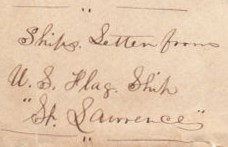 Ships. Letter from
U. S. Flag. Ship
"St. Lawrence"